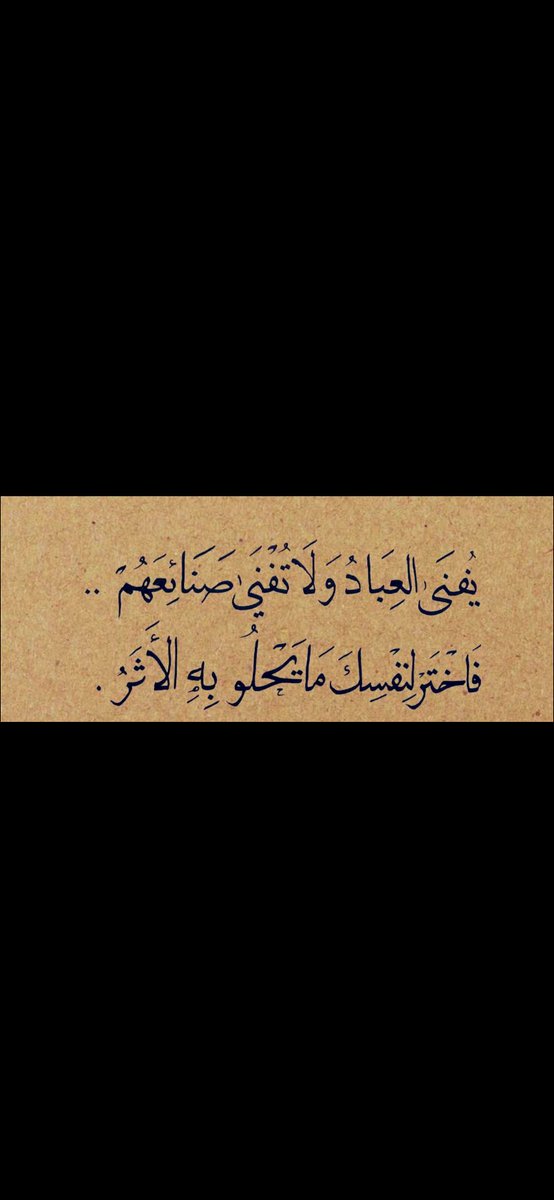 يُفنَىٰ العِبادُ وَلَا تُفْنَىٰ صَنَائِعَهُمْ ..
فَاخْتَرْ لِنفْسِكَ مَا يَحْلُو بِهِ الأَثَرُ .